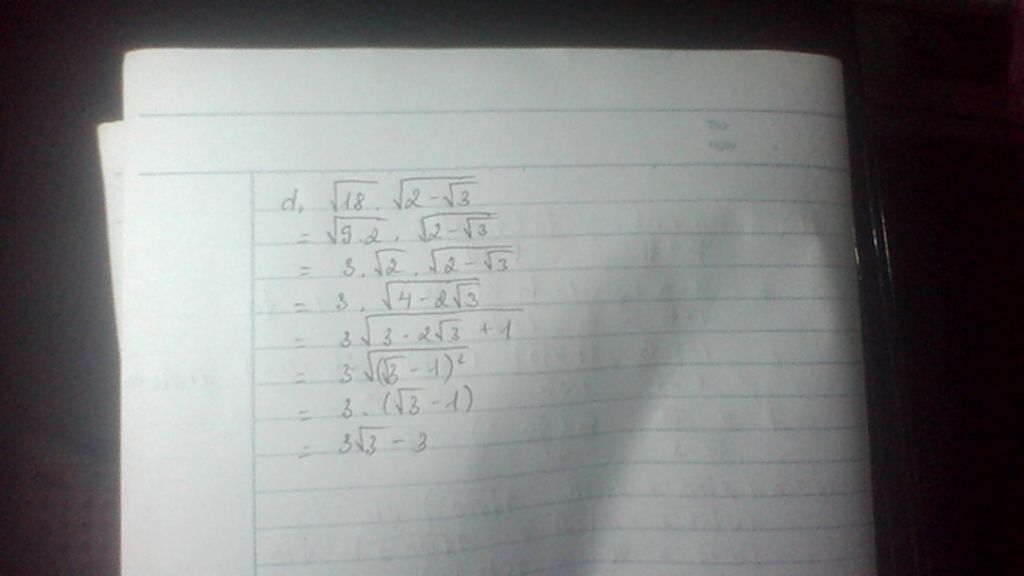 Thứ
Ngày
d, √18 . √(2 - √3)
= √(9.2) . √(2 - √3)
= 3 . √2 . √(2 - √3)
= 3 . √(4 - 2√3)
= 3√(3 - 2√3 + 1)
= 3√((√3 - 1)²)
= 3 . (√3 - 1)
= 3√3 - 3